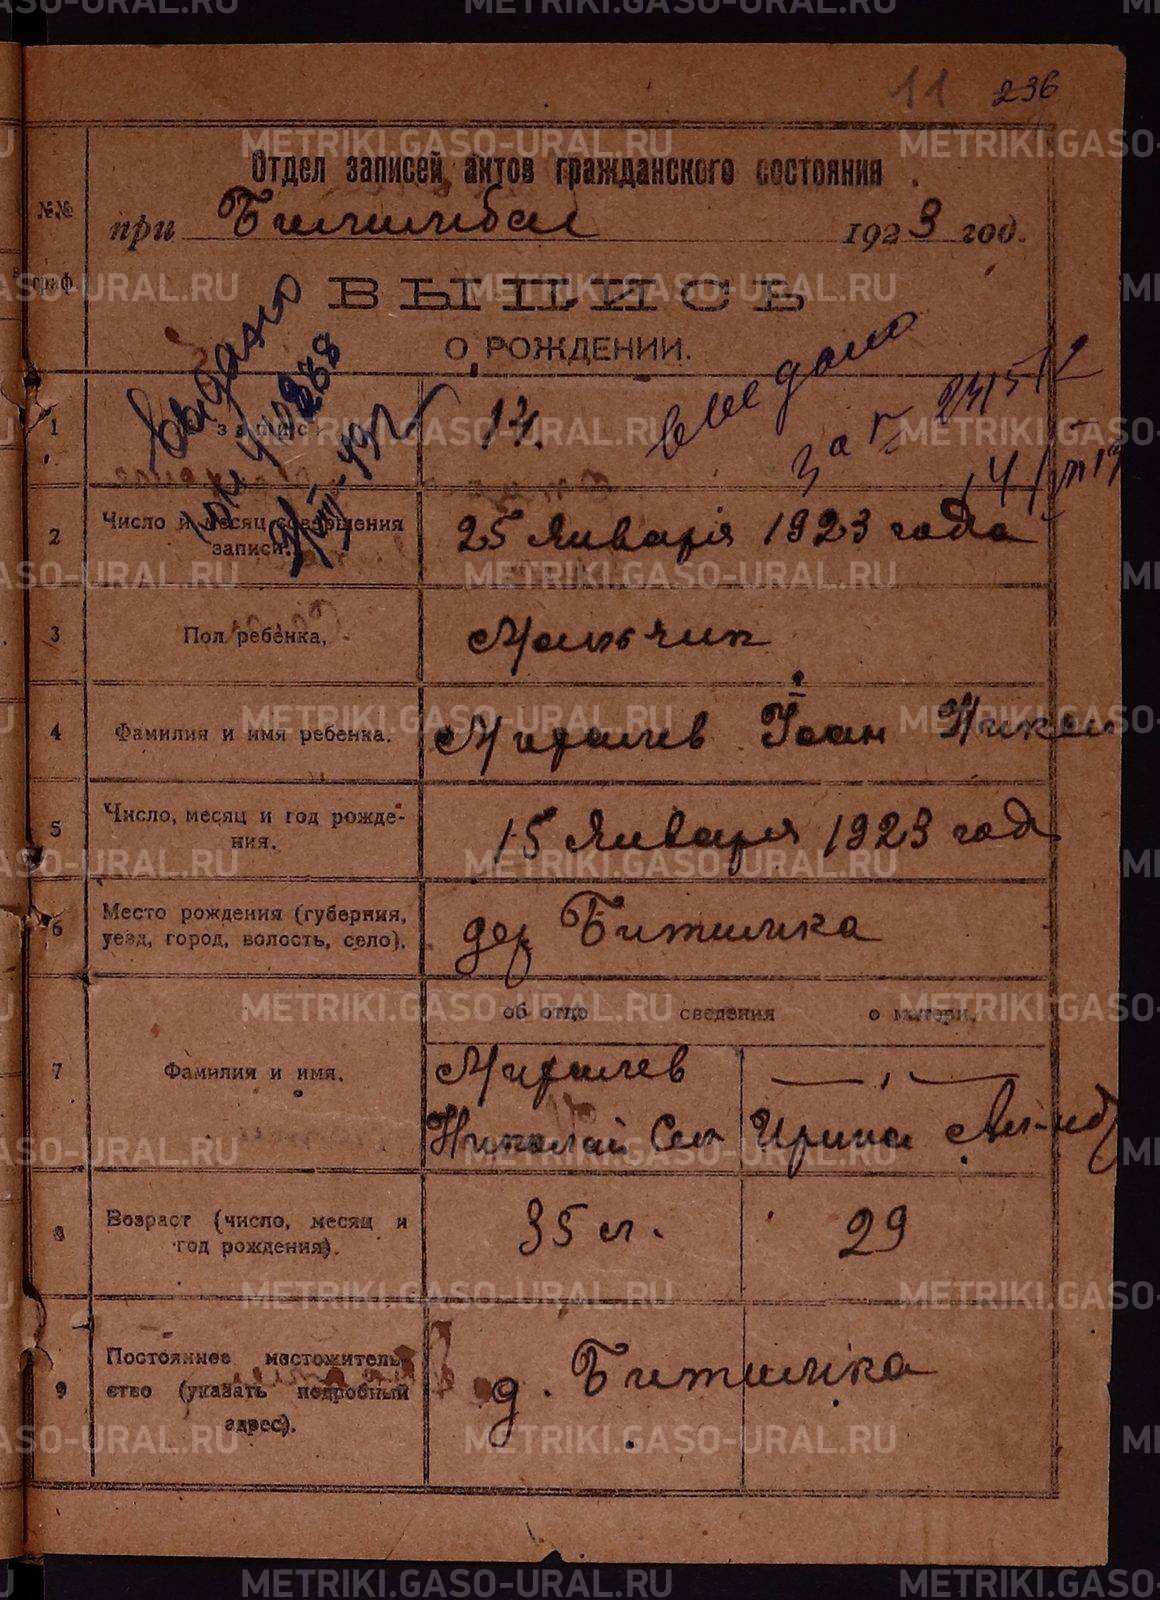 11 236
Отдел записей актов гражданского состояния
№№ граф.
при Билимбае 1923 год.
ВЫПИСЬ
О РОЖДЕНИИ.
выдано
выдано
за №
1 запис 14.
2 Число и месяц совершения записи. 25 Января 1923 года
3 Пол ребенка, Мальчик
4 Фамилия и имя ребенка. Иоан Никол
5 Число, месяц и год рожде-
ния. 15 Января 1923 год
6 Место рождения (губерния,
уезд, город, волость, село). дер Битимка
об отце сведения о матери.
7 Фамилия и имя.
Николай Ирина
8 Возраст (число, месяц и
год рождения). 35 л. 29
9 Постоянное местожитель-
ство (указать подробный
адрес). д. Битимка
METRIKI.GASO-URAL.RU